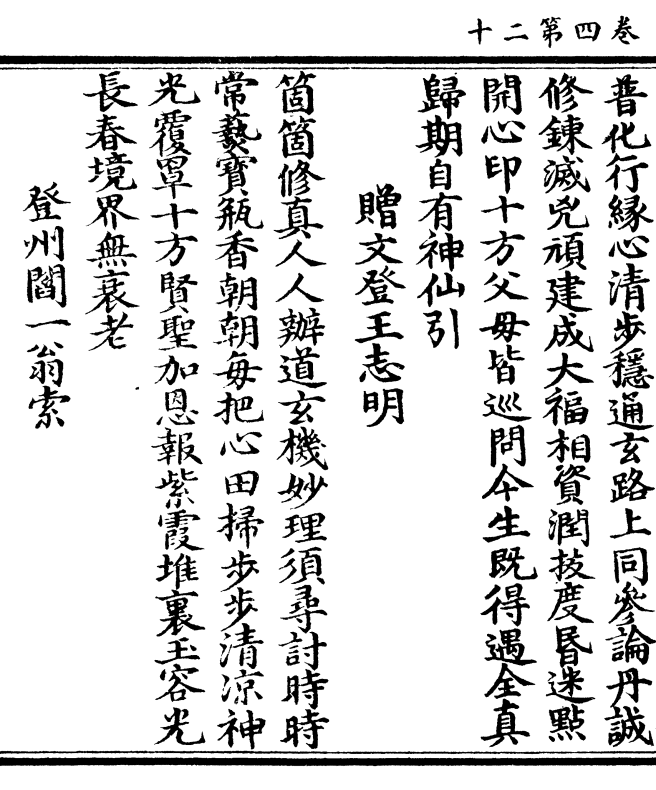 卷四第二十
普化行緣心清步穩通玄路上同參論丹誠
修鍊滅兇頑建成大福相資潤技度昏迷點
開心印十方父母皆巡問今生既得遇全真
歸期自有神仙引
贈文登王志明
箇箇修真人人辦道玄機妙理須尋討時時
常爇寶瓶香朝朝每把心田掃步步清凉神
光覆罩十方賢聖加恩報紫霞堆裏玉容光
長春境界無衰老
登州閻一翁索